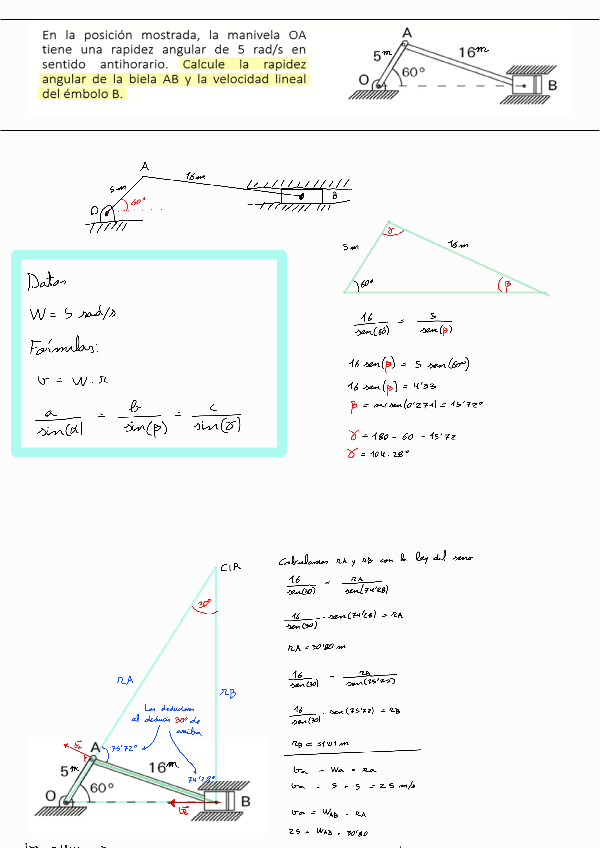 En la posición mostrada, la manivela OA
tiene una rapidez angular de 5 rad/s en
sentido antihorario. Calcule la rapidez
angular de la biela AB y la velocidad lineal
del émbolo B.
A
5m
16m
O
60°
B
A
5m
16m
O
60°
B
5m
γ
16m
60°
β
Datos
W = 5 rad/s
Fórmulas:
v = W · r
a/sin(α) = b/sin(β) = c/sin(γ)
16/sen(60) = 5/sen(β)
16 sen(β) = 5 sen(60°)
16 sen(β) = 4'33
β = arcsen(0'271) = 15'72°
γ = 180 - 60 - 15'72
γ = 104.28°
CIR
30°
rA
rB
Los deducimos
al deducir 30° de
arriba
75'72°
74'28°
A
5m
16m
O
60°
B
Calculamos rA y rB con la ley del seno
16/sen(30) = rA/sen(74'28)
16/sen(30) · sen(74'28) = rA
rA = 30'80 m
16/sen(30) = rB/sen(75'72)
16/sen(30) · sen(75'72) = rB
rB = 31'01 m
va = Wa · ra
va = 5 · 5 = 25 m/s
va = WAB · RA
25 = WAB · 30'80